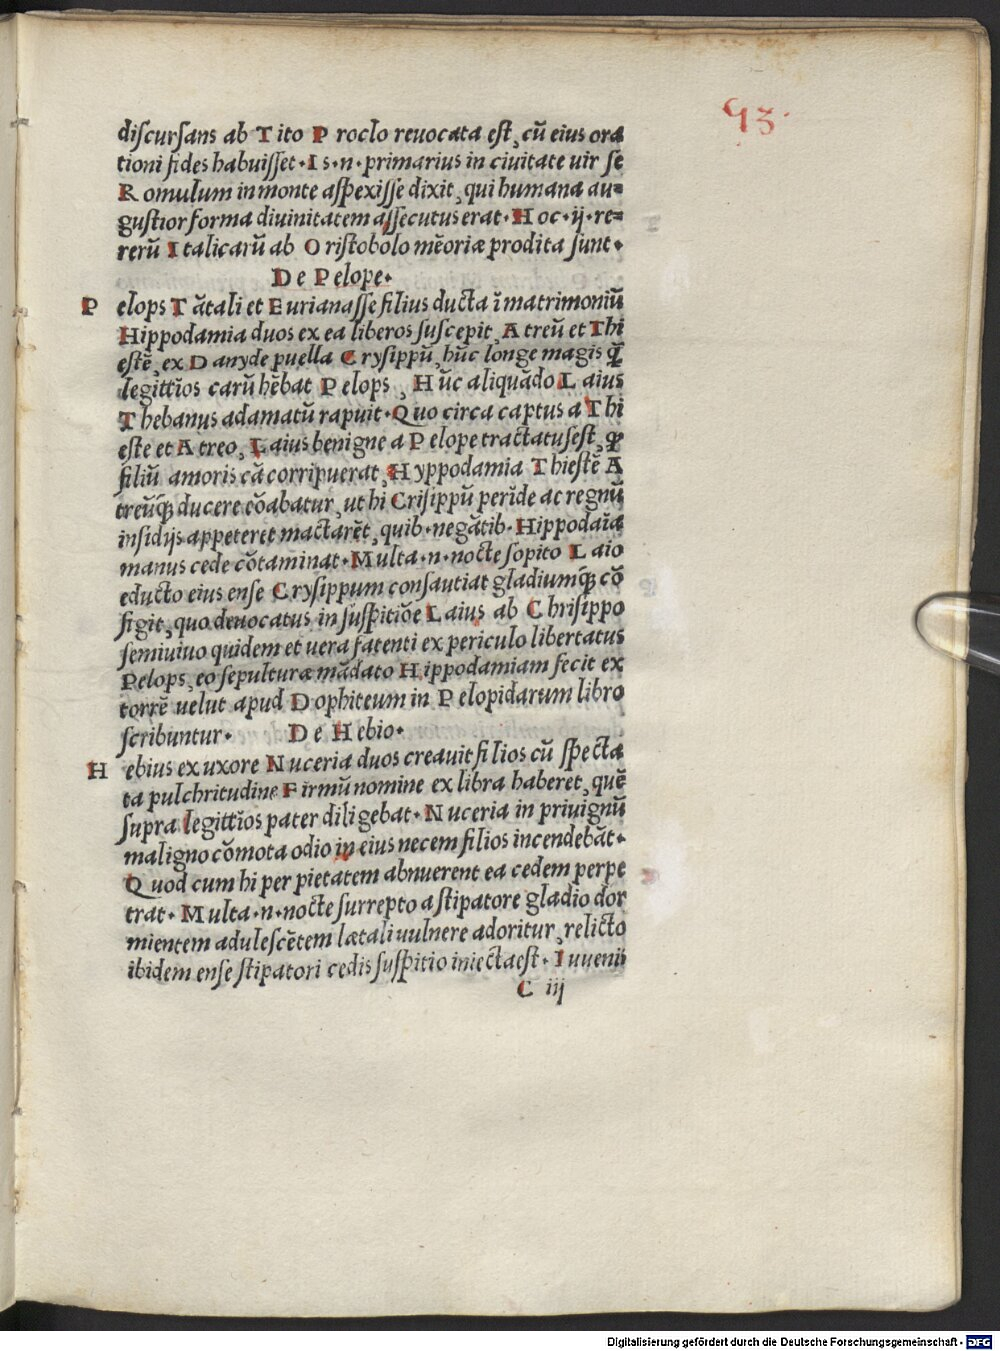 93.
discursans ab Tito Proclo revocata est, cū eius ora
tioni fides habuisset. Is.n.primarius in civitate uir se
Romulum in monte aspexisse dixit, qui humana au=
gustior forma divinitatem assecutus erat. Hoc.ij.re=
rerū Italicarū ab Oristobolo mēoriæ prodita sunt.
De Pelope.
Pelops Tātali et Eurianasse filius ducta ī matrimoniū
Hippodamia duos ex ea liberos suscepit, Atreū et Thi
estē, ex Danyde puella Crysippū, hūc longe magis q̄
legittīos carū hēbat Pelops, Hūc aliquādo Laius
Thebanus adamatū rapuit. Quo circa captus a Thi
este et Atreo, Laius benigne a Pelope tractatus est, ꝙ
filiū amoris cā corripuerat, Hyppodamia Thiestē A
treūq̨ ducere cōabatur, ut hi Crisippū perīde ac regnū
insidijs appeteret mactarēt, quib.negātib.Hippodaīa
manus cede cōtaminat. Multa.n.nocte sopito Laio
educto eius ense Crysippum consautiat gladiumq̨ cō
figit, quo devocatus in suspitiōe Laius ab Chrisippo
semiuiuo quidem et uera fatenti ex periculo libertatus
Pelops, eo sepulturæ mādato Hippodamiam fecit ex
torrē uelut apud Dophiteum in Pelopidarum libro
scribuntur. De Hebio.
Hebius ex uxore Nuceria duos creauit filios cū specta
ta pulchritudine Firmū nomine ex libra haberet, quē
supra legittīos pater diligebat. Nuceria in priuignū
maligno cōmota odio in eius necem filios incendebāt.
Quod cum hi per pietatem abnuerent ea cedem perpe
trat. Multa.n.nocte surrepto a stipatore gladio dor
mientem adulescētem lætali uulnere adoritur, relicto
ibidem ense stipatori cedis suspitio iniecta est. Iuuenii
C iij
Digitalisierung gefördert durch die Deutsche Forschungsgemeinschaft - DFG